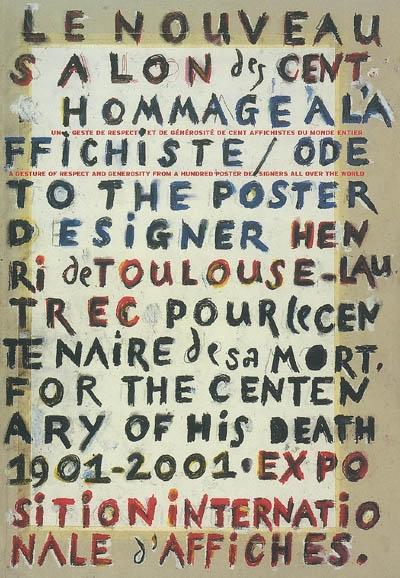 LE NOUVEAU
SALON des CENT
HOMMAGE A L'A
UN GESTE DE RESPECT ET DE GÉNÉROSITÉ DE CENT AFFICHISTES DU MONDE ENTIER
FFiCHiSTE / ODE
A GESTURE OF RESPECT AND GENEROSITY FROM A HUNDRED POSTER DESIGNERS ALL OVER THE WORLD
TO THE POSTER
DESiGNER HEN
Ri de TOULOUSE-LAU
TREC POUR le CEN
TENAIRE de sa MORT.
FOR THE CENTEN
ARY OF HiS DEATH
1901-2001. EXPO
SiTiON iNTERNATiO
NALE d'AFFiCHES.